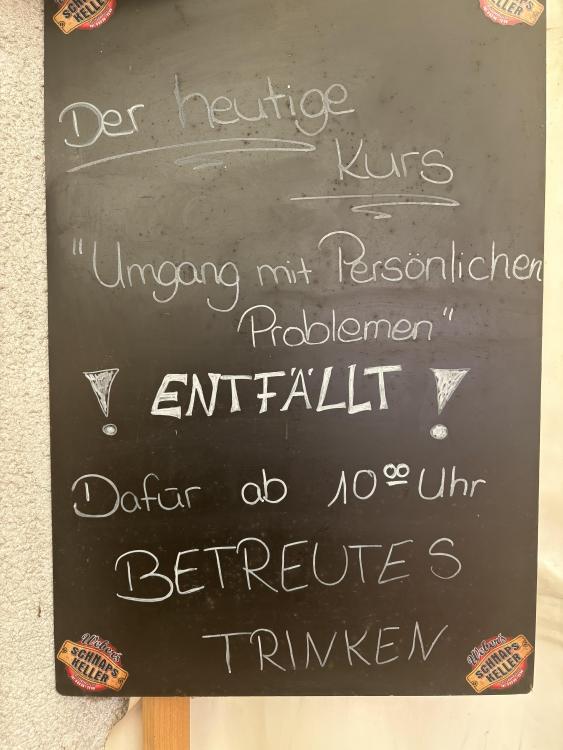 SCHNAPS
KELLER
SCHNAPS
KELLER
Der heutige
Kurs
"Umgang mit Persönlichen
Problemen"
! ENTFÄLLT !
Dafür ab 10⁰⁰ Uhr
BETREUTES
TRINKEN
Weber's
SCHNAPS
KELLER
Weber's
SCHNAPS
KELLER